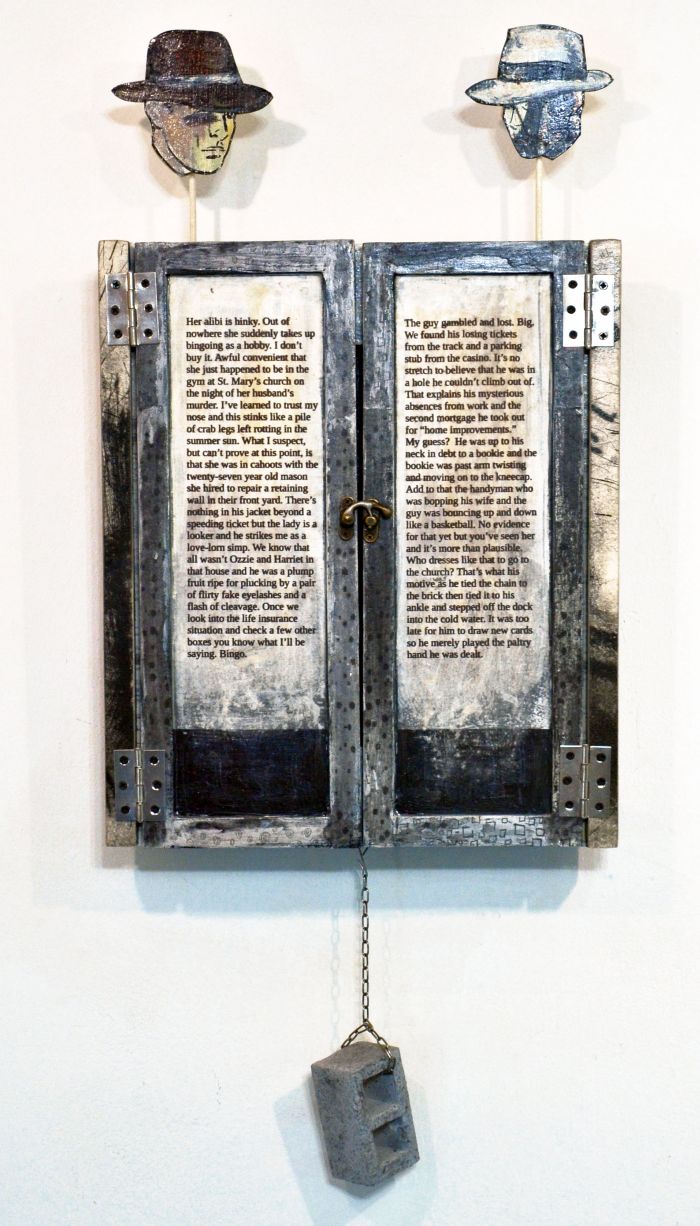 Her alibi is hinky. Out of
nowhere she suddenly takes up
bingoing as a hobby. I don't
buy it. Awful convenient that
she just happened to be in the
gym at St. Mary's church on
the night of her husband's
murder. I've learned to trust my
nose and this stinks like a pile
of crab legs left rotting in the
summer sun. What I suspect,
but can't prove at this point, is
that she was in cahoots with the
twenty-seven year old mason
she hired to repair a retaining
wall in their front yard. There's
nothing in his jacket beyond a
speeding ticket but the lady is a
looker and he strikes me as a
love-lorn simp. We know that
all wasn't Ozzie and Harriet in
that house and he was a plump
fruit ripe for plucking by a pair
of flirty fake eyelashes and a
flash of cleavage. Once we
look into the life insurance
situation and check a few other
boxes you know what I'll be
saying. Bingo.
The guy gambled and lost. Big.
We found his losing tickets
from the track and a parking
stub from the casino. It's no
stretch to believe that he was in
a hole he couldn't climb out of.
That explains his mysterious
absences from work and the
second mortgage he took out
for "home improvements."
My guess? He was up to his
neck in debt to a bookie and the
bookie was past arm twisting
and moving on to the kneecap.
Add to that the handyman who
was bopping his wife and the
guy was bouncing up and down
like a basketball. No evidence
for that yet but you've seen her
and it's more than plausible.
Who dresses like that to go to
the church? That's what his
motive as he tied the chain to
the brick then tied it to his
ankle and stepped off the dock
into the cold water. It was too
late for him to draw new cards
so he merely played the paltry
hand he was dealt.